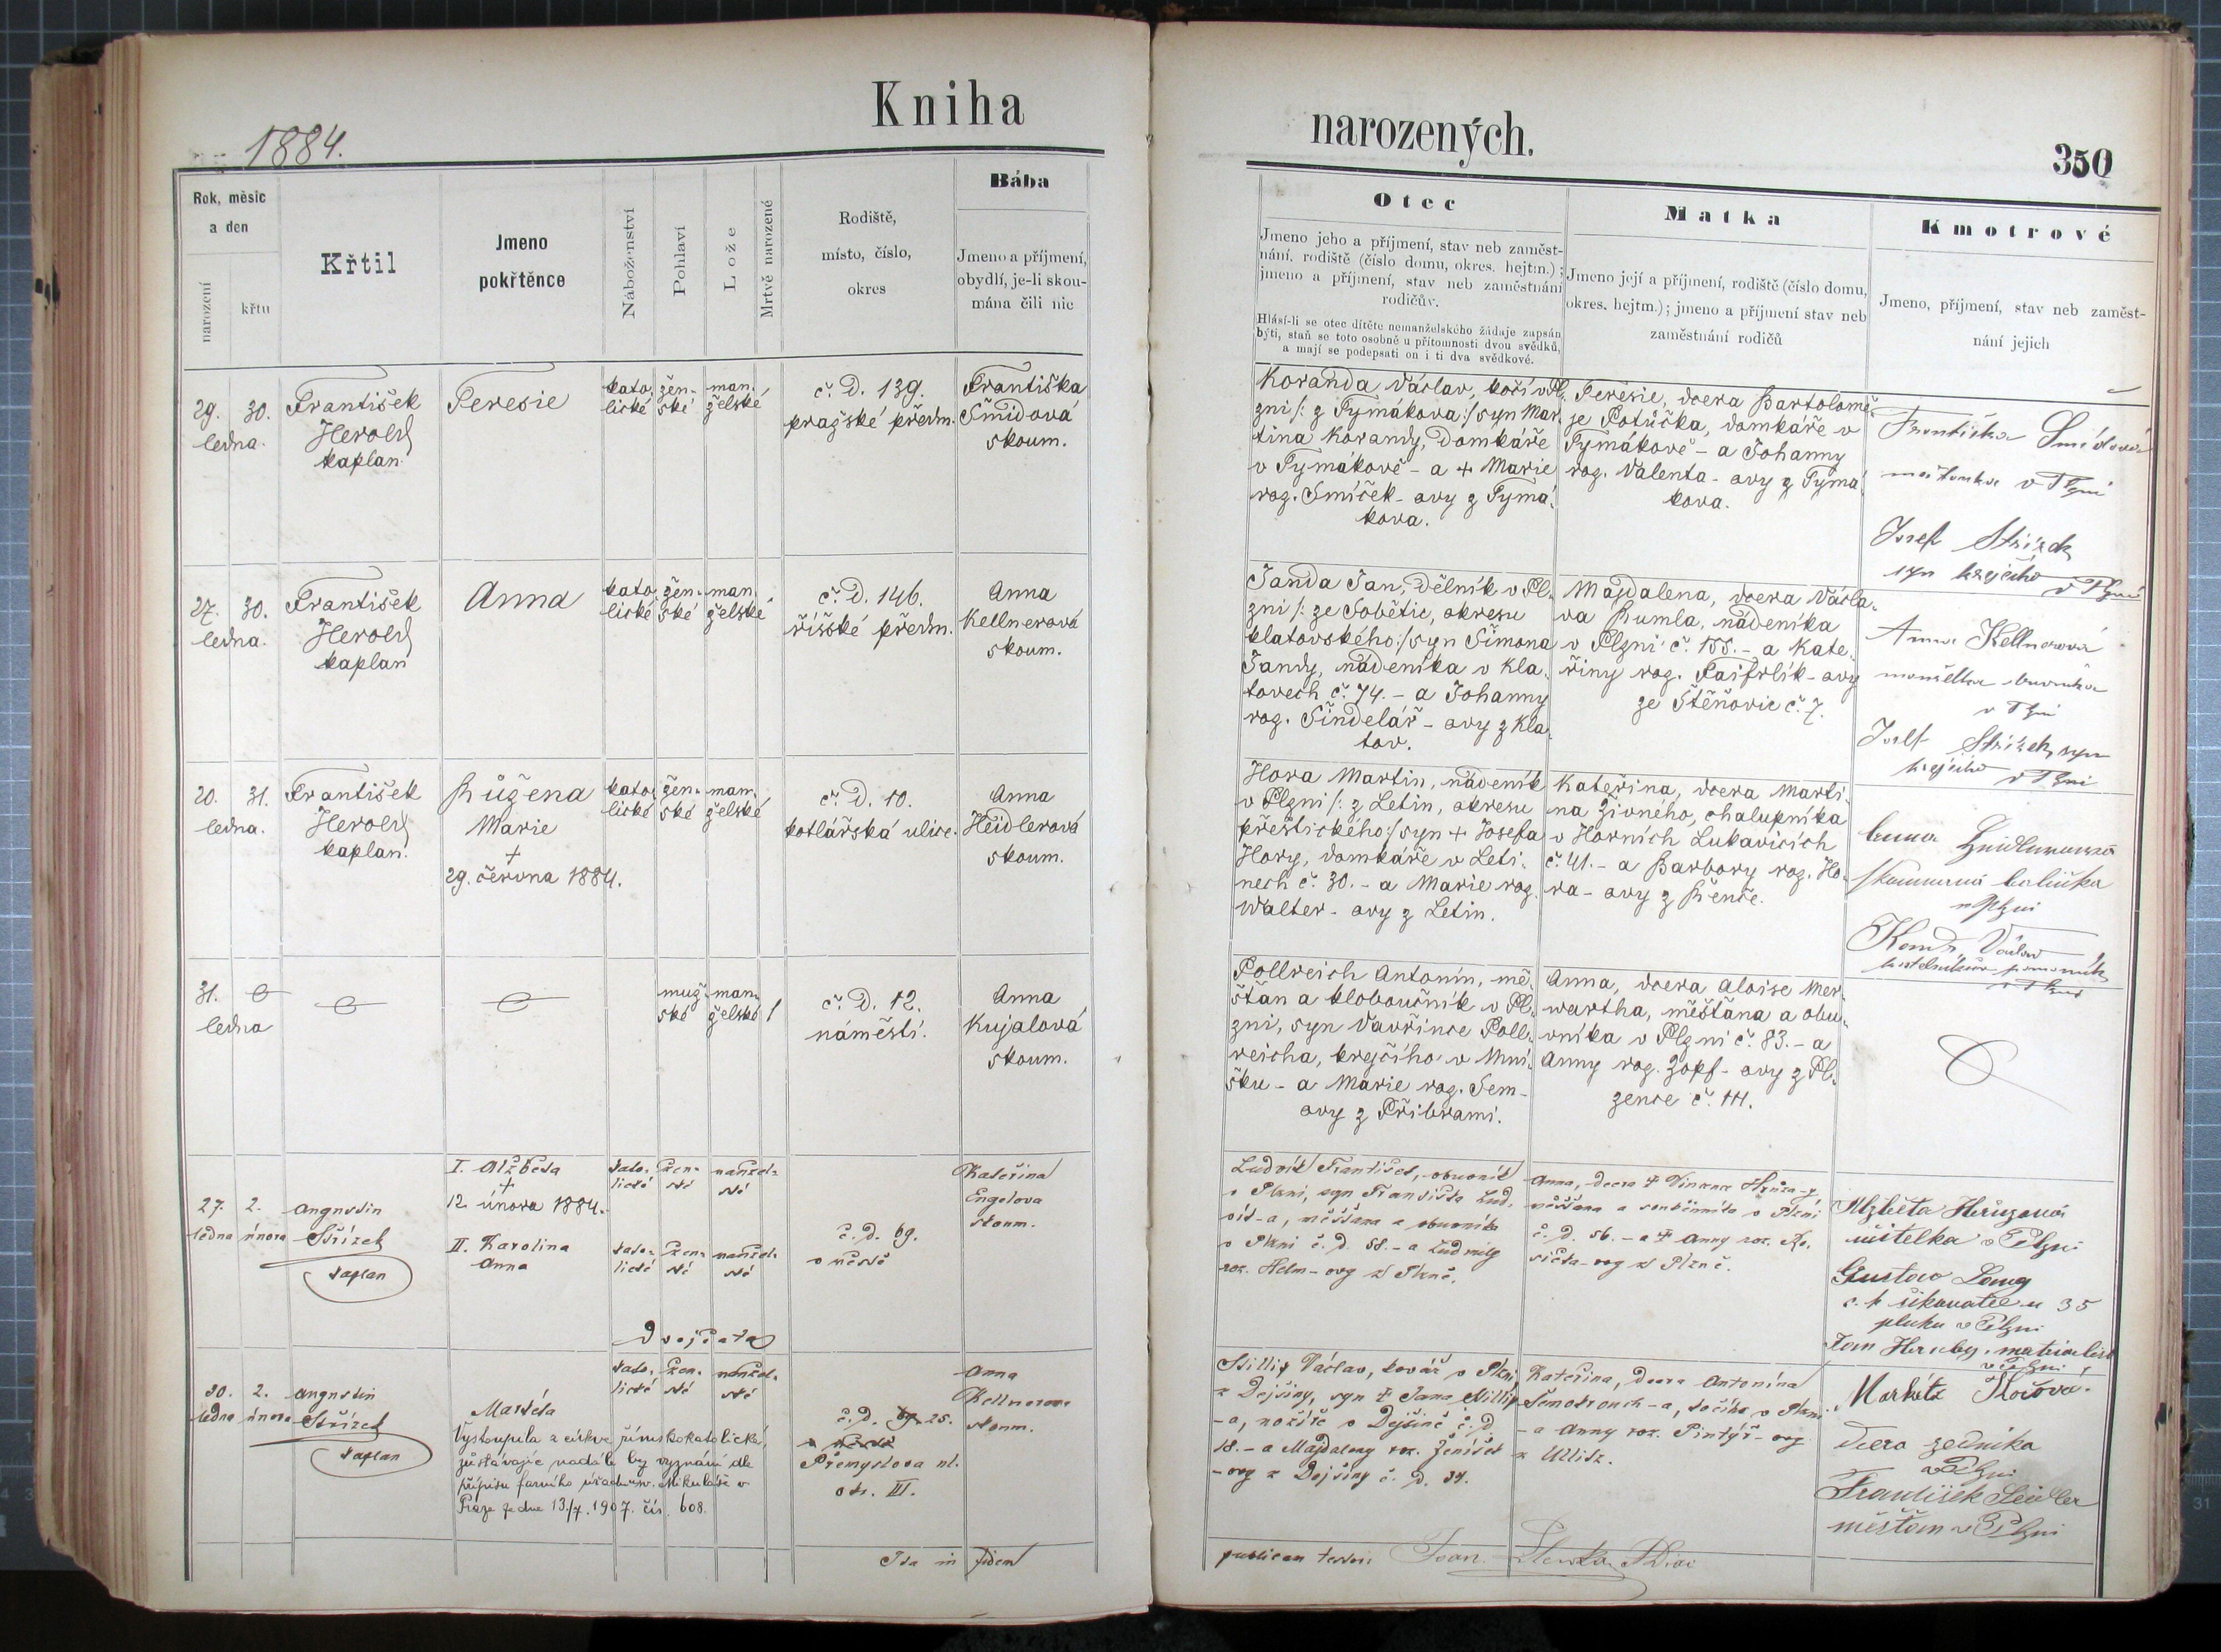 1884.
Kniha
narozených.
350
Rok, měsíc
a den
narození
křtu
Křtil
Jmeno
pokřtěnce
Náboženství
Pohlaví
Lože
Mrtvě narozené
Rodiště,
místo, číslo,
okres
Bába
Jmeno a příjmení,
obydlí, je-li skou-
mána čili nic
Otec
Jmeno jeho a příjmení, stav neb zaměst-
nání, rodiště (číslo domu, okres. hejtm.);
jmeno a příjmení, stav neb zaměstnání
rodičův.
Hlásí-li se otec dítěte nemanželského žádaje zapsán
býti, staň se toto osobně u přítomnosti dvou svědků,
a mají se podepsati on i ti dva svědkové.
Matka
Jmeno její a příjmení, rodiště (číslo domu,
okres. hejtm.); jmeno a příjmení stav neb
zaměstnání rodičů
Kmotrové
Jmeno, příjmení, stav neb zaměst-
nání jejich
29. 30.
ledna.
František
Herold
kaplan.
Teresie
kato-
lické
žen-
ské
man-
želské
č. D. 139.
pražské předm.
Františka
Šmídová
skoum.
Koranda Václav, kočí v Pl-
zni /: z Tymákova :/ syn Mar-
tina Korandy, domkáře
v Tymákově - a + Marie
roz. Smíček - ovy z Tymá-
kova.
Teresie, dcera Bartolomě-
je Potůčka, domkáře v
Tymákově - a Johanny
roz. Valenta - ovy z Tymá-
kova.
Františka Šmídová
měštanka v Plzni
Josef Střízek
syn krejčího v Plzni
27. 30.
ledna.
František
Herold
kaplan
Anna
kato-
lické
žen-
ské
man-
želské
č. D. 146.
říšské předm.
Anna
Kellnerová
skoum.
Janda Jan, dělník v Pl-
zni /: ze Sobětic, okresu
klatovského :/ syn Šimona
Jandy, nádeníka v Kla-
tovech č. 74. - a Johanny
roz. Šindelář - ovy z Kla-
tov.
Majdalena, dcera Václa-
va Rumla, nádeníka
v Plzni č. 155. - a Kate-
řiny roz. Paifrlík - ovy
ze Štěnovic č. 7.
Anna Kellnerová
manželka
v Plzni
Josef Střízek, syn
krejčího v Plzni
20. 31.
ledna.
František
Herold
kaplan.
Růžena
Marie
+
29. června 1884.
kato-
lické
žen-
ské
man-
želské
č. D. 10.
kotlářská ulice.
Anna
Heidlerová
skoum.
Hora Martin, nádeník
v Plzni /: z Letin, okresu
přeštického :/ syn + Josefa
Hory, domkáře v Leti-
nech č. 30. - a Marie roz.
Walter - ovy z Letin.
Kateřina, dcera Marti-
na Živného, chalupníka
v Horních Lukavicích
č. 41. - a Barbory roz. Ho-
ra - ovy z Řenče.
Anna Heidlerová
skoumaná babička
v Plzni
Václav
v Plzni
31.
ledna
muž-
ské
man-
želské
1
č. D. 12.
náměstí.
Anna
Kujalová
skoum.
Pollreich Antonín, mě-
šťan a kloboučník v Pl-
zni, syn Vavřince Poll-
reicha, krejčího v Mní-
šku - a Marie roz. Sem-
ovy z Příbrami.
Anna, dcera Aloise Mer-
wartha, měšťana a obu-
vníka v Plzni č. 83. - a
Anny roz. Zopf - ovy z Pl-
zence č. 111.
27. 2.
ledna února
Augustin
Střízek
kaplan
I. Alžběta
+
12. února 1884.
II. Karolina
Anna
kato-
lické
žen-
ské
manžel-
ské
kato-
lické
žen-
ské
manžel-
ské
Dvojčata
č. D. 69.
v městě
Kateřina
Engelova
skoum.
Ludvík František, obuvník
v Plzni, syn Františka Lud-
vík-a, měšťana a obuvníka
v Plzni č. D. 58. - a Ludmily
roz. Helm - ovy z Plzně.
Anna, dcera + Vincence Hrůza-y,
měšťana a soukeníka v Plzni
č. D. 56. - a + Anny roz. Ko-
sička - ovy z Plzně.
Alžběta Hrůzová
učitelka v Plzni
Gustav Lang
c. k. šikovatel u 35
pluku v Plzni
Jan Hruby, materialist
v Plzni
30. 2.
ledna února
Augustin
Střízek
kaplan
Markéta
Vystoupila z církve římskokatolické,
zůstávajíc nadále bez vyznání dle
přípisu farního úřadu u sv. Mikuláše v
Praze ze dne 13./7. 1907. čís. 608.
kato-
lické
žen-
ské
manžel-
ské
č. D. 69. 25.
v městě
Přemyslova ul.
odr. III.
Anna
Kellnerova
skoum.
Millip Václav, kovář v Plzni,
z Dejšiny, syn + Jana Millip
-a, nožíře v Dejšině č. D.
18. - a Majdaleny roz. Jeníček
- ovy z Dejšiny č. D. 34.
Kateřina, dcera Antonína
Šmotronch-a, kočího v Plzni
- a Anny roz. Pintýř - ovy
z Ullitz.
Markéta Kočová.
dcera zedníka
v Plzni
František Seidler
měšťan v Plzni
Ita in fidem
publicam testor: Joan.